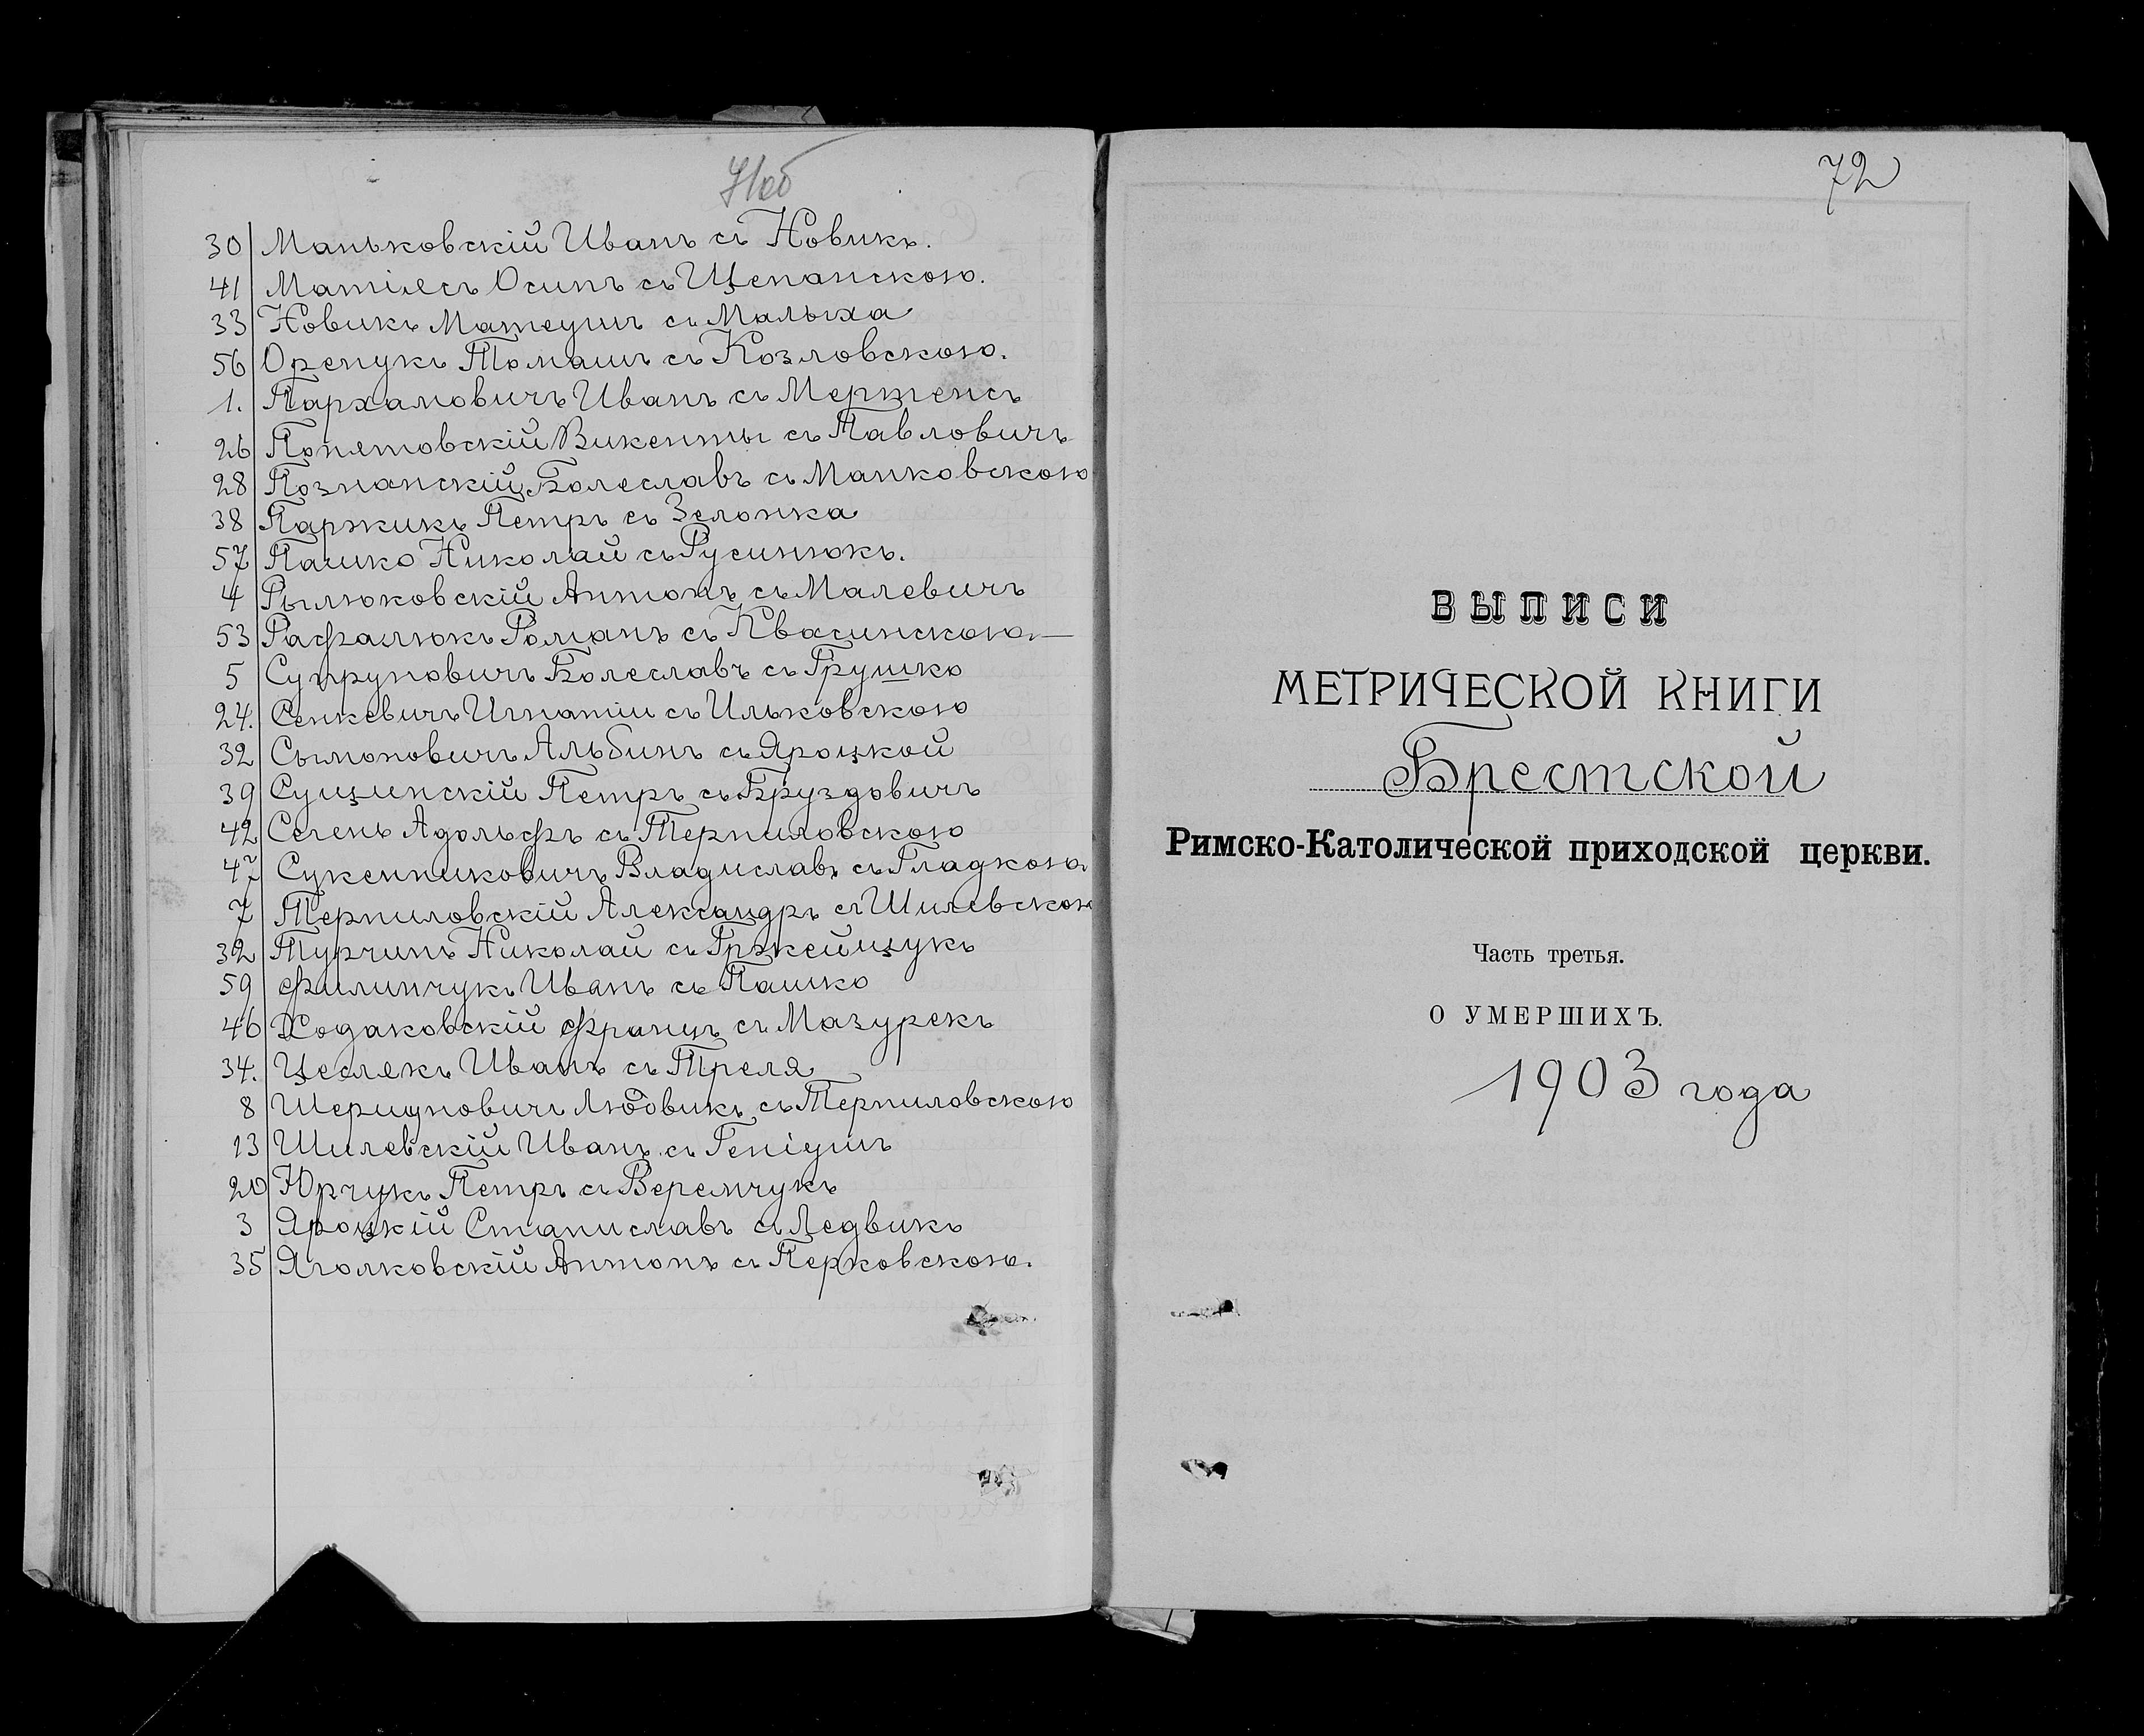 71об
30 Маньковскій Иванъ съ Новикъ.
41 Матіясъ Осипъ съ Щепанскою.
33 Новикъ Матеушъ съ Малыха
56 Оренукъ Томашъ съ Козловскою.
1. Пархамовичъ Иванъ съ Мертенсъ
26 Понятовскій Викенты съ Павловичъ
28 Познанскій Болеславъ съ Манковскою
38 Паржикъ Петръ съ Зелонка
57 Пашко Николай съ Русинюкъ.
4 Рылюковскій Антонъ съ Малевичъ
53 Рафалюкъ Романъ съ Квасинскою
5 Супруновичъ Болеславъ съ Грушко
24. Сенкевичъ Игнатіи съ Ильковскою
32 Сымоновичъ Альбинъ съ Яроцкой
39 Сущинскій Петръ съ Бруздовичъ
42 Сегень Адольфъ съ Терпиловскою
47 Сукенниковичъ Владиславъ съ Гладкою
7 Терпиловскій Александръ съ Шилевскою
32 Турчинъ Николай съ Гржейщукъ
59 Филипчукъ Иванъ съ Пашко
46 Ходаковскій Францъ съ Мазурекъ
34. Цеслякъ Иванъ съ Треля
8 Шершуновичъ Людвикъ съ Терпиловскою
13 Шилевскій Иванъ съ Геніушъ
20 Юрчукъ Петръ съ Веремчукъ
3 Яроцкій Станиславъ съ Ледвикъ
35 Яголковскій Антонъ съ Перковскою.
72
ВЫПИСИ
МЕТРИЧЕСКОЙ КНИГИ
Брестской
Римско-Католической приходской церкви.
Часть третья.
О УМЕРШИХЪ.
1903 года